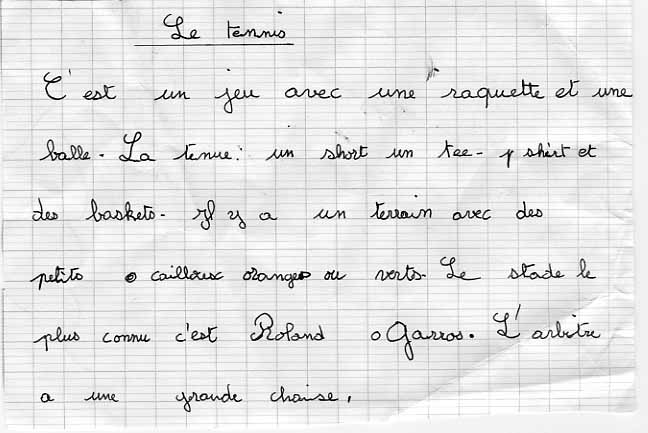 Le tennis
C'est un jeu avec une raquette et une
balle. La tenue: un short un tee- shirt et
des baskets. Il y a un terrain avec des
petits cailloux oranges ou verts. Le stade le
plus connu c'est Roland Garros. L'arbitre
a une grande chaise,